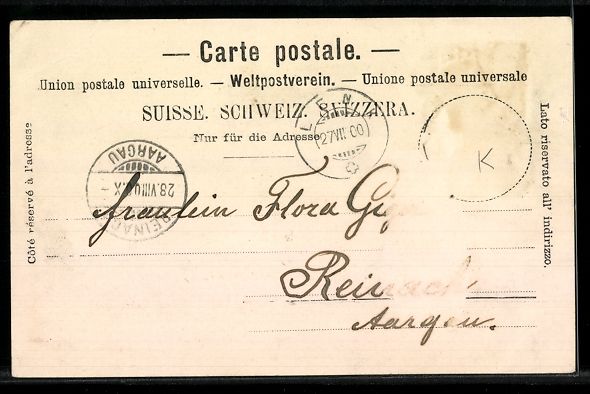 — Carte postale. —
Union postale universelle. — Weltpostverein. — Unione postale universale
SUISSE. SCHWEIZ. SVIZZERA.
Nur für die Adresse
Côté réservé à l'adresse
Lato riservato all' indirizzo.
27 VIII 00
K
AARGAU
28.VIII.0
REINA
Fräulein Flora
Reinach
Aargau.